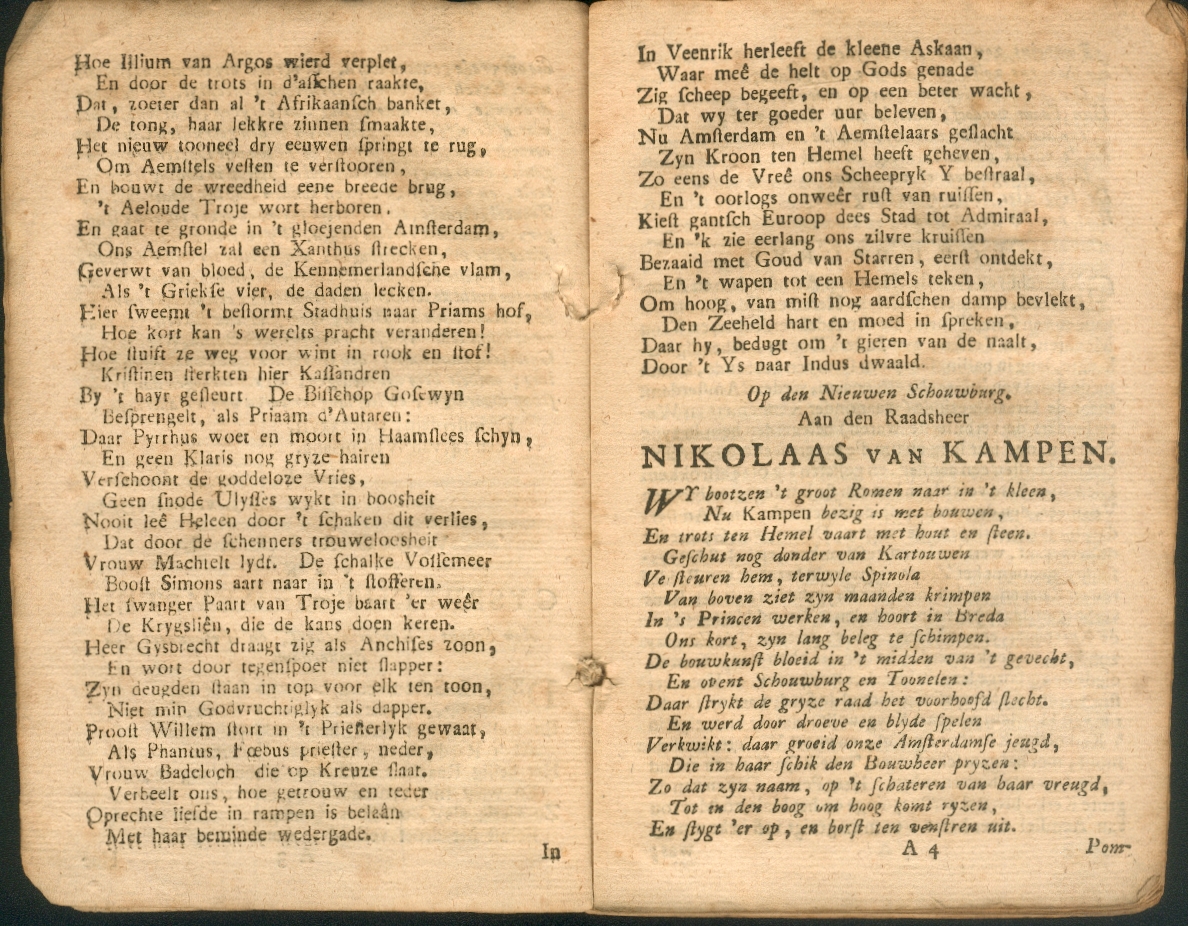 Hoe Illium van Argos wierd verplet,
En door de trots in d'aſſchen raakte,
Dat, zoeter dan al 't Afrikaanſch banket,
De tong, haar lekkre zinnen ſmaakte,
Het nieuw tooneel dry eeuwen ſpringt te rug,
Om Aemſtels veſten te verſtooren,
En bouwt de wreedheid eene breede brug,
't Aeloude Troje wort herboren.
En gaat te gronde in 't gloejenden Amſterdam,
Ons Aemſtel zal een Xanthus ſtrecken,
Geverwt van bloed, de Kennemerlandſche vlam,
Als 't Griekſe vier, de daden lecken.
Hier ſweemt 't beſtormt Stadhuis naar Priams hof,
Hoe kort kan 's werelts pracht veranderen!
Hoe ſtuift ze weg voor wint in rook en ſtof!
Kriſtinen ſterkten hier Kaſſandren
By 't hayr geſleurt De Biſſchop Goſewyn
Beſprengelt, als Priaam d'Autaren:
Daar Pyrrhus woet en moort in Haamſtees ſchyn,
En geen Klaris nog gryze hairen
Verſchoont de goddeloze Vries,
Geen ſnode Ulyſſes wykt in boosheit
Nooit leê Heleen door 't ſchaken dit verlies,
Dat door de ſchenners trouweloosheit
Vrouw Machtelt lydt. De ſchalke Voſſemeer
Booſt Simons aart naar in 't ſtofferen.
Het ſwanger Paart van Troje baart 'er weêr
De Krygsliên, die de kans doen keren.
Heer Gysbrecht draagt zig als Anchiſes zoon,
En wort door tegenſpoet niet ſlapper:
Zyn deugden ſtaan in top voor elk ten toon,
Niet min Godvruchtiglyk als dapper.
Prooſt Willem ſtort in 't Prieſterlyk gewaat,
Als Phantus, Fœbus prieſter, neder,
Vrouw Badeloch die op Kreuze ſlaat.
Verbeelt ons, hoe getrouw en teder
Oprechte liefde in rampen is belaân
Met haar beminde wedergade.
In
In Veenrik herleeft de kleene Askaan,
Waar meê de helt op Gods genade
Zig ſcheep begeeft, en op een beter wacht,
Dat wy ter goeder uur beleven,
Nu Amſterdam en 't Aemſtelaars geſlacht
Zyn Kroon ten Hemel heeft geheven,
Zo eens de Vreê ons Scheepryk Y beſtraal,
En 't oorlogs onweêr ruſt van ruiſſen,
Kieſt gantſch Euroop dees Stad tot Admiraal,
En 'k zie eerlang ons zilvre kruiſſen
Bezaaid met Goud van Starren, eerſt ontdekt,
En 't wapen tot een Hemels teken,
Om hoog, van miſt nog aardſchen damp bevlekt,
Den Zeeheld hart en moed in ſpreken,
Daar hy, bedugt om 't gieren van de naalt,
Door 't Ys naar Indus dwaald.
Op den Nieuwen Schouwburg.
Aan den Raadsheer
NIKOLAAS VAN KAMPEN.
WY bootzen 't groot Romen naar in 't kleen,
Nu Kampen bezig is met bouwen,
En trots ten Hemel vaart met hout en ſteen.
Geſchut nog donder van Kartouwen
Ve ſteuren hem, terwyle Spinola
Van boven ziet zyn maanden krimpen
In 's Princen werken, en hoort in Breda
Ons kort, zyn lang beleg te ſchimpen.
De bouwkunſt bloeid in 't midden van 't gevecht,
En opent Schouwburg en Toonelen:
Daar ſtrykt de gryze raad het voorhoofd ſlecht.
En werd door droeve en blyde ſpelen
Verkwikt: daar groeid onze Amſterdamſe jeugd,
Die in haar ſchik den Bouwheer pryzen:
Zo dat zyn naam, op 't ſchateren van haar vreugd,
Tot in den boog om hoog komt ryzen,
En ſtygt 'er op, en borſt ten venſtren uit.
A 4
Pom-